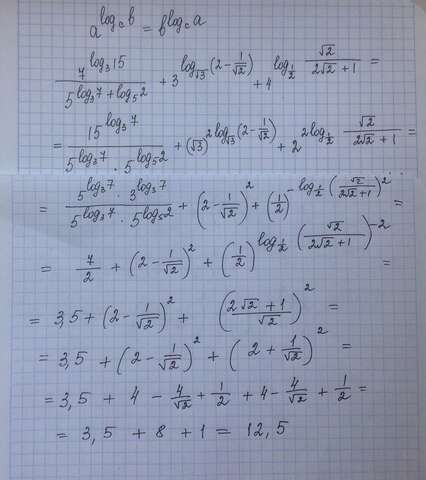 a^{log_c b} = b^{log_c a}
\frac{7^{log_3 15}}{5^{log_3 7 + log_5 2}} + 3^{log_{\sqrt{3}} (2 - \frac{1}{\sqrt{2}})} + 4^{log_{\frac{1}{2}} \frac{\sqrt{2}}{2\sqrt{2} + 1}} =
= \frac{15^{log_3 7}}{5^{log_3 7} \cdot 5^{log_5 2}} + (\sqrt{3})^{2 log_{\sqrt{3}} (2 - \frac{1}{\sqrt{2}})} + 2^{2 log_{\frac{1}{2}} \frac{\sqrt{2}}{2\sqrt{2} + 1}} =
= \frac{5^{log_3 7} \cdot 3^{log_3 7}}{5^{log_3 7} \cdot 5^{log_5 2}} + (2 - \frac{1}{\sqrt{2}})^2 + (\frac{1}{2})^{-log_{\frac{1}{2}} (\frac{\sqrt{2}}{2\sqrt{2} + 1})^2} =
= \frac{7}{2} + (2 - \frac{1}{\sqrt{2}})^2 + (\frac{1}{2})^{log_{\frac{1}{2}} (\frac{\sqrt{2}}{2\sqrt{2} + 1})^{-2}} =
= 3,5 + (2 - \frac{1}{\sqrt{2}})^2 + (\frac{2\sqrt{2} + 1}{\sqrt{2}})^2 =
= 3,5 + (2 - \frac{1}{\sqrt{2}})^2 + (2 + \frac{1}{\sqrt{2}})^2 =
= 3,5 + 4 - \frac{4}{\sqrt{2}} + \frac{1}{2} + 4 - \frac{4}{\sqrt{2}} + \frac{1}{2} =
= 3,5 + 8 + 1 = 12,5